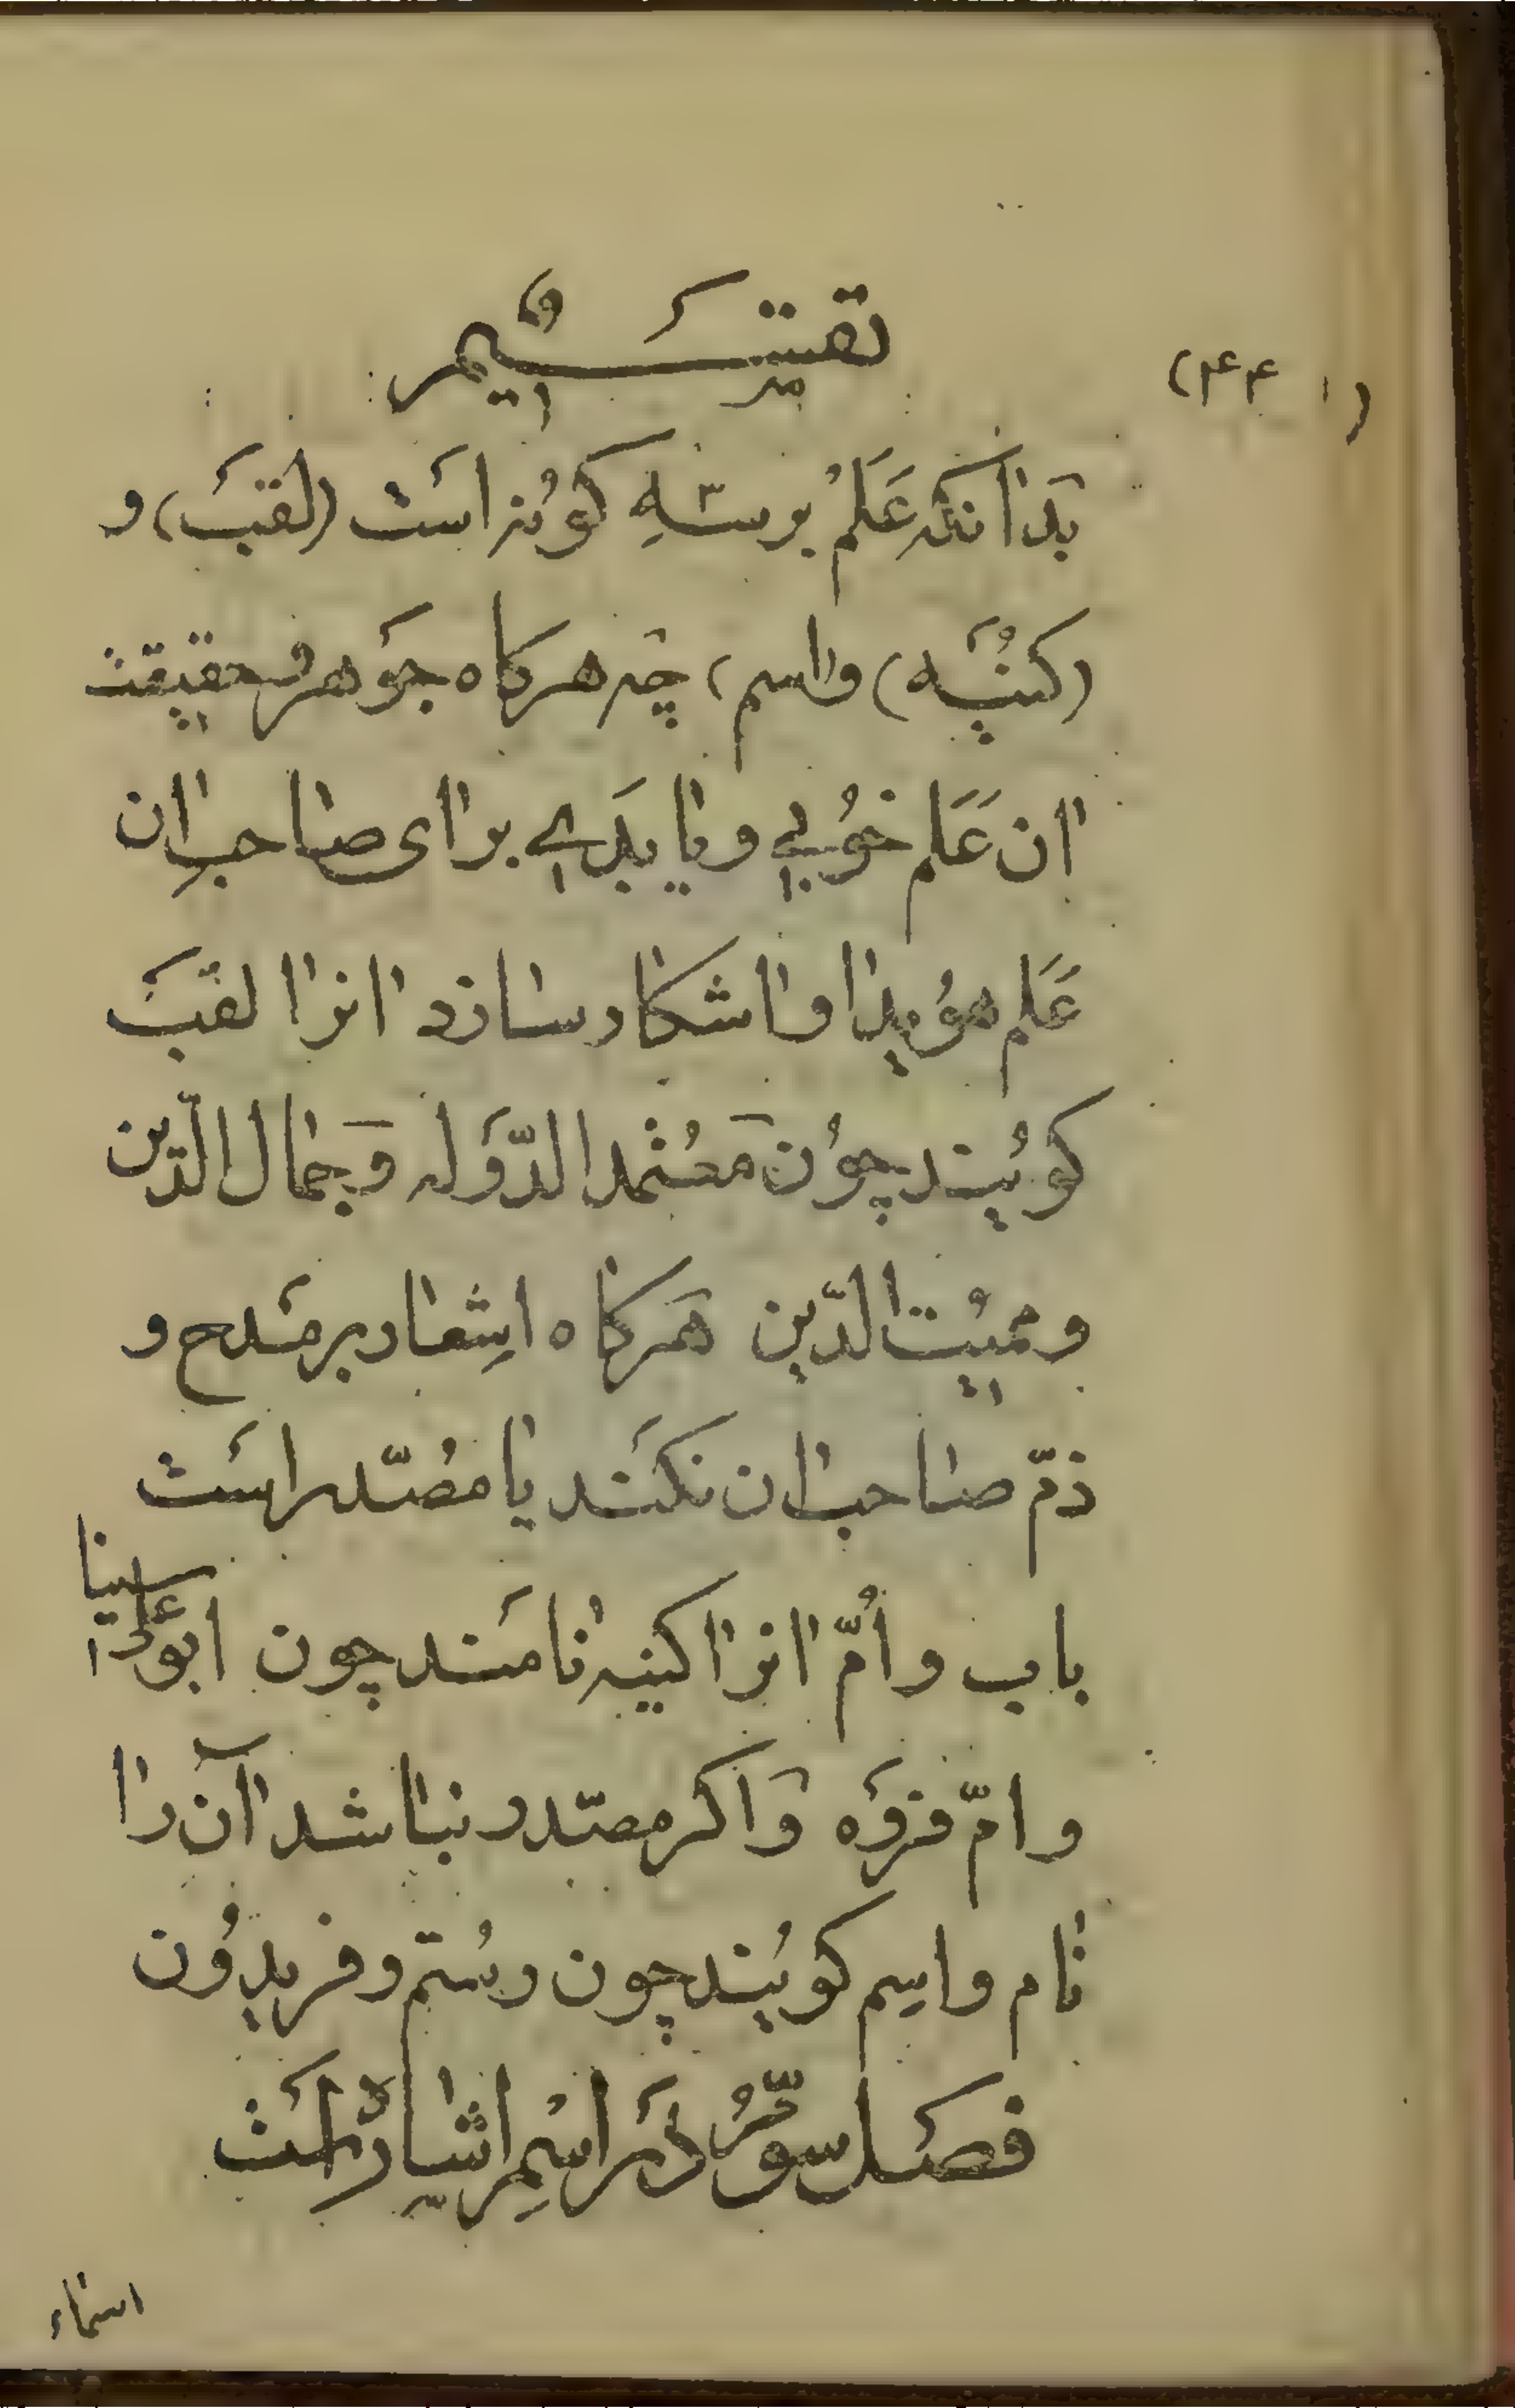 تقسیم
(۱۴۴)
بدانکه عَلَمْ بر سه کونه است (لقب) و
(کنیه) واسم) چه هرکاه جوهر و حقیقت
ان عَلَم خوبی و یا بدی برای صاحب ان
عَلَم هویدا و اشکار سازد انرا لقب
کویند چون معتمدالدّوله و جمال الدّین
و ممیت الدّین هرکاه اِشعار بر مدح و
ذمّ صاحب ان نکند یا مصدّر است
باب و اُمّ انرا کنیه نامند چون ابوعلی سینا
و امّ فروه و اکر مصدر نباشد آن را
نام و اسم کویند چون رستم و فریدون
فصل سوّم در اسم اشاره است
اسماء